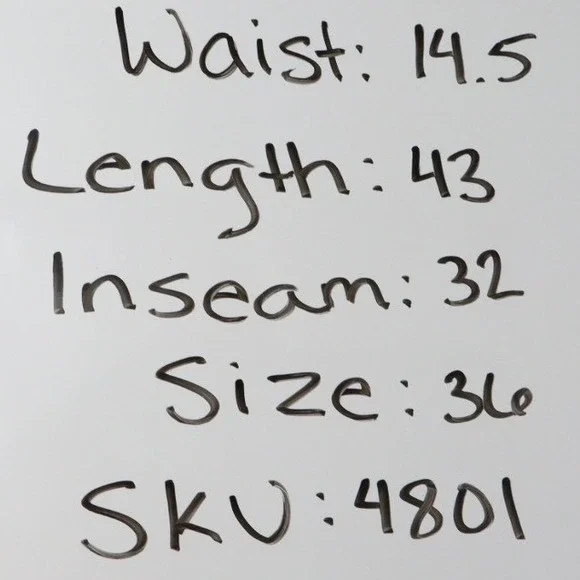 Waist: 14.5
Length: 43
Inseam: 32
Size: 36
SKU: 4801